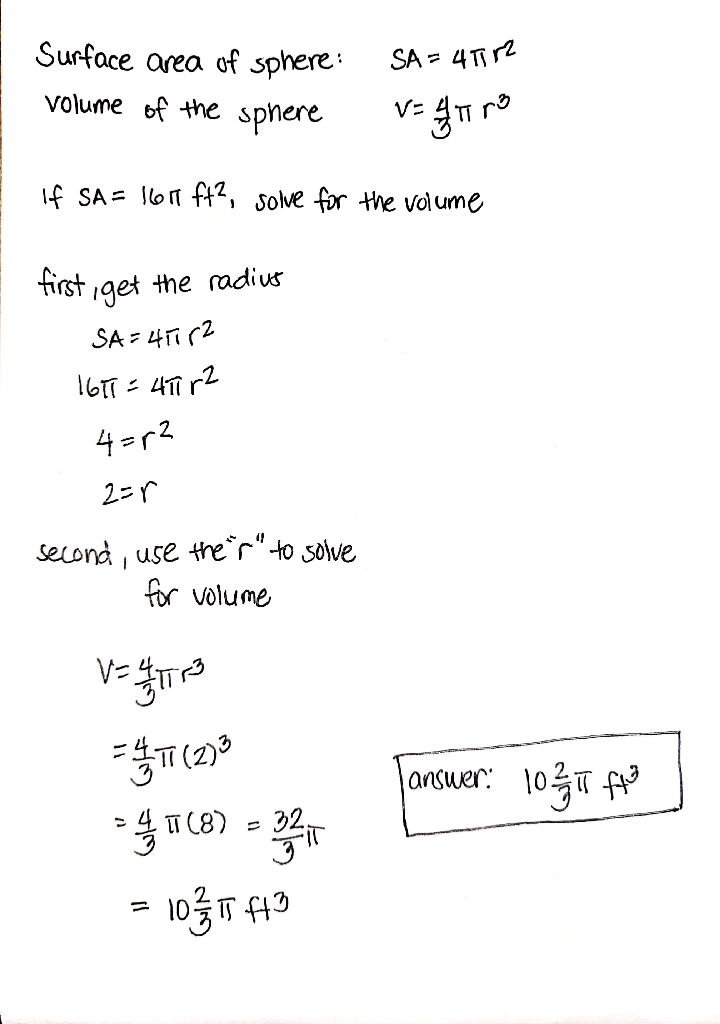 Surface area of sphere: SA = 4πr²
volume of the sphere V = 4/3 π r³
If SA = 16π ft², solve for the volume
first, get the radius
SA = 4πr²
16π = 4πr²
4 = r²
2 = r
second, use the "r" to solve
for volume
V = 4/3 π r³
= 4/3 π (2)³
= 4/3 π (8) = 32/3 π
= 10 2/3 π ft³
answer: 10 2/3 π ft³